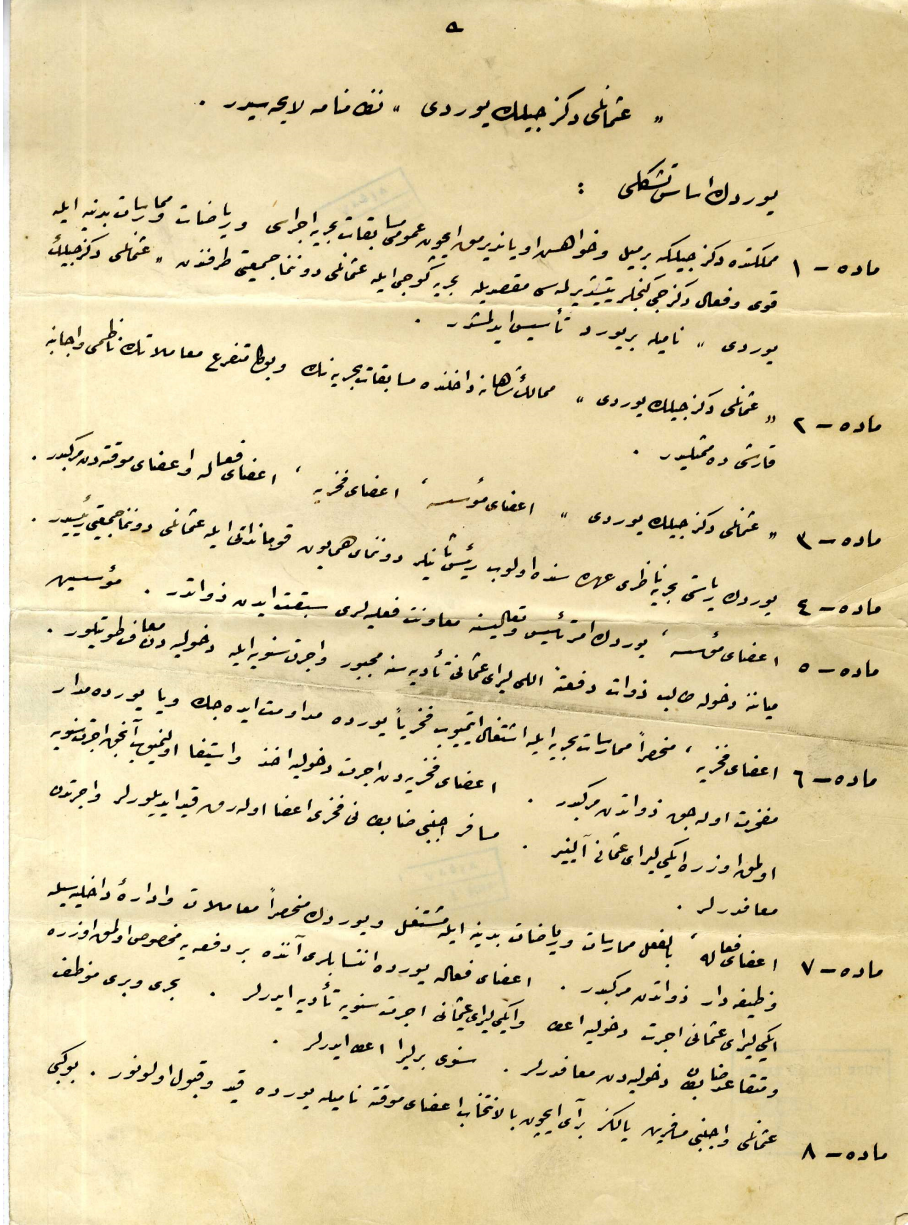 ٥
« عثمانلی دكزجیلك یوردی » نظامنامه لایحه سیدر .
یوردك اساس تشكلی :
ماده – ١ مملكتده دكزجیلكه بر میل و خواهش اویاندیرمق ایچون عمومی مسابقات بحریه اجراسی و ریاضات و ممارسات بدنیه ایله
قوی و فعال دكزجی كنجلر یتیشدیرلمه سی مقصدیله بحریه كوجی ایله عثمانلی دوننما جمعیتی طرفندن « عثمانلی دكزجیلك
یوردی » نامیله بر یورد تأسیس ایدلمشدر .
ماده – ٢ « عثمانلی دكزجیلك یوردی » ممالك شاهانه داخلنده مسابقات بحریه نك و بوكا متفرع معاملاتك ناظمی و اجانبه
قارشی ده ممثلیدر .
ماده – ٣ « عثمانلی دكزجیلك یوردی » اعضای مؤسسه ، اعضای فخریه ، اعضای فعاله و اعضای موقته دن مركبدر .
ماده – ٤ یوردك ریاستی بحریه ناظری عهده سنده اولوب رئیس ثانیلر دوننمای همایون قوماندانی ایله عثمانلی دوننما جمعیتی رئیسیدر .
ماده – ٥ اعضای مؤسسه ، یوردك امر تأسیس و تعالیسنه معاونت فعلیه لری سبقت ایدن ذواتدر . مؤسسین
میاننه دخوله طالب ذوات دفعةً اللی لیرای عثمانی تأدیه سنه مجبور و اجرت سنویه ایله دخولیه دن معاف طوتیلور .
ماده – ٦ اعضای فخریه ، منحصراً ممارسات بحریه ایله اشتغال ایتمیوب فخریاً یورده مداومت ایده جك ویا یورده مدار
مفخرت اوله جق ذواتدن مركبدر . اعضای فخریه دن اجرت دخولیه اخذ و استیفا اولنمیوب آنجق اجرت سنویه
اولمق اوزره ایكی لیرای عثمانی آلینیر . مسافر اجنبی ضابطانی فخری اعضا اوله رق قید ایدیلورلر و اجرتدن
معافدرلر .
ماده – ٧ اعضای فعاله ، بالفعل ممارسات و ریاضات بدنیه ایله مشتغل و یوردك منحصراً معاملات و اداره‌ٔ داخلیه سیله
وظیفه دار ذواتدن مركبدر . اعضای فعاله یورده انتسابلری آننده بر دفعه یه مخصوص اولمق اوزره
ایكی لیرای عثمانی اجرت دخولیه اعطا و ایكی لیرای عثمانی اجرت سنویه تأدیه ایدرلر . بحری و بری موظف
و متقاعد ضابطان دخولیه دن معافدرلر . سنوی بر لیرا اعطا ایدرلر .
ماده – ٨ عثمانلی و اجنبی مسافرین یالكز بر آی ایچون بالانتخاب اعضای موقته نامیله یورده قید و قبول اولونور . بوكبی